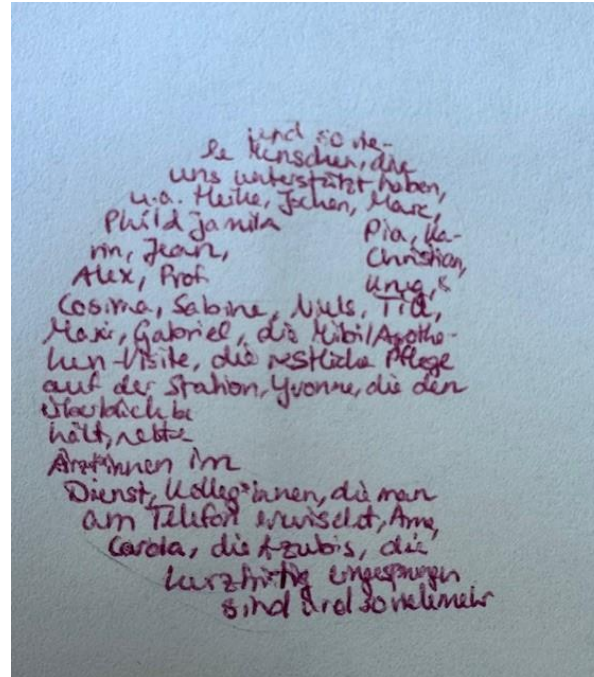 und so vie-
le Menschen, die
uns unterstützt haben,
u.a. Heike, Jochen, Marc,
Phil & Jamila Pia, Ka-
rin, Jean, Christian,
Alex, Prof. Krug, &
Cosima, Sabine, Nils, Tia,
Maxi, Gabriel, die Mibi/Apothe-
ken-Visite, die restliche Pflege
auf der Station, Yvonne, die den
Überblick be
hält, nette
Ärzt*innen im
Dienst, Kolleg*innen, die man
am Telefon erwischt, Anne,
Carola, die Azubis, die
kurzfristig eingesprungen
sind und so viele mehr